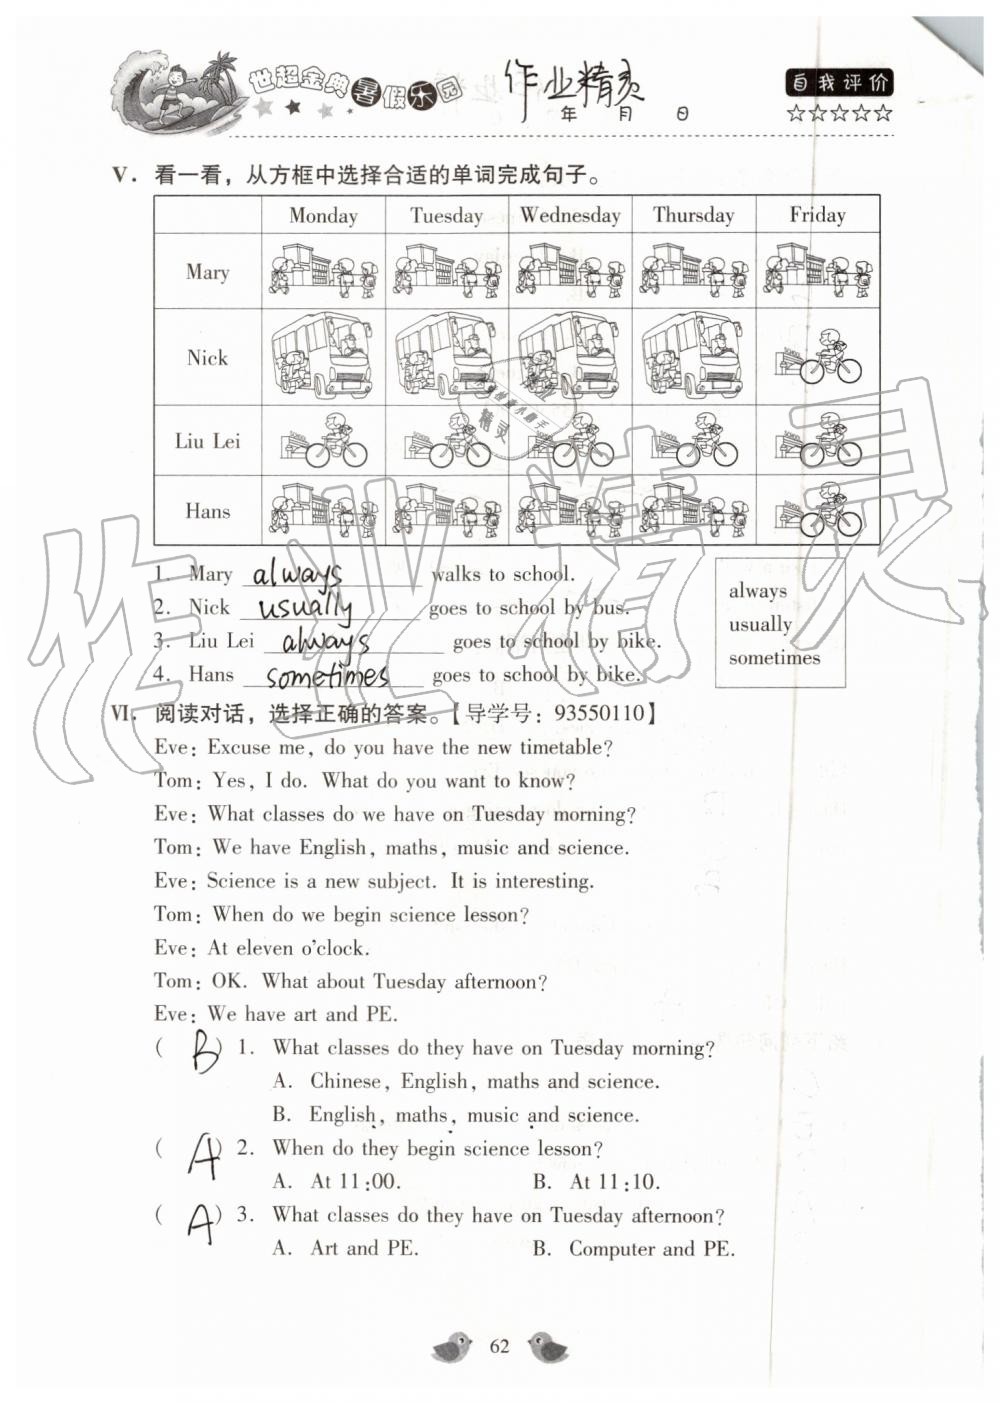 世超金典暑假乐园
作业精灵
年 月 日
自我评价
☆☆☆☆☆
V. 看一看，从方框中选择合适的单词完成句子。
Monday Tuesday Wednesday Thursday Friday
Mary
Nick
Liu Lei
Hans
1. Mary always walks to school.
2. Nick usually goes to school by bus.
3. Liu Lei always goes to school by bike.
4. Hans sometimes goes to school by bike.
always
usually
sometimes
VI. 阅读对话，选择正确的答案。【导学号：93550110】
Eve: Excuse me, do you have the new timetable?
Tom: Yes, I do. What do you want to know?
Eve: What classes do we have on Tuesday morning?
Tom: We have English, maths, music and science.
Eve: Science is a new subject. It is interesting.
Tom: When do we begin science lesson?
Eve: At eleven o'clock.
Tom: OK. What about Tuesday afternoon?
Eve: We have art and PE.
( B ) 1. What classes do they have on Tuesday morning?
A. Chinese, English, maths and science.
B. English, maths, music and science.
( A ) 2. When do they begin science lesson?
A. At 11:00. B. At 11:10.
( A ) 3. What classes do they have on Tuesday afternoon?
A. Art and PE. B. Computer and PE.
62
作业精灵